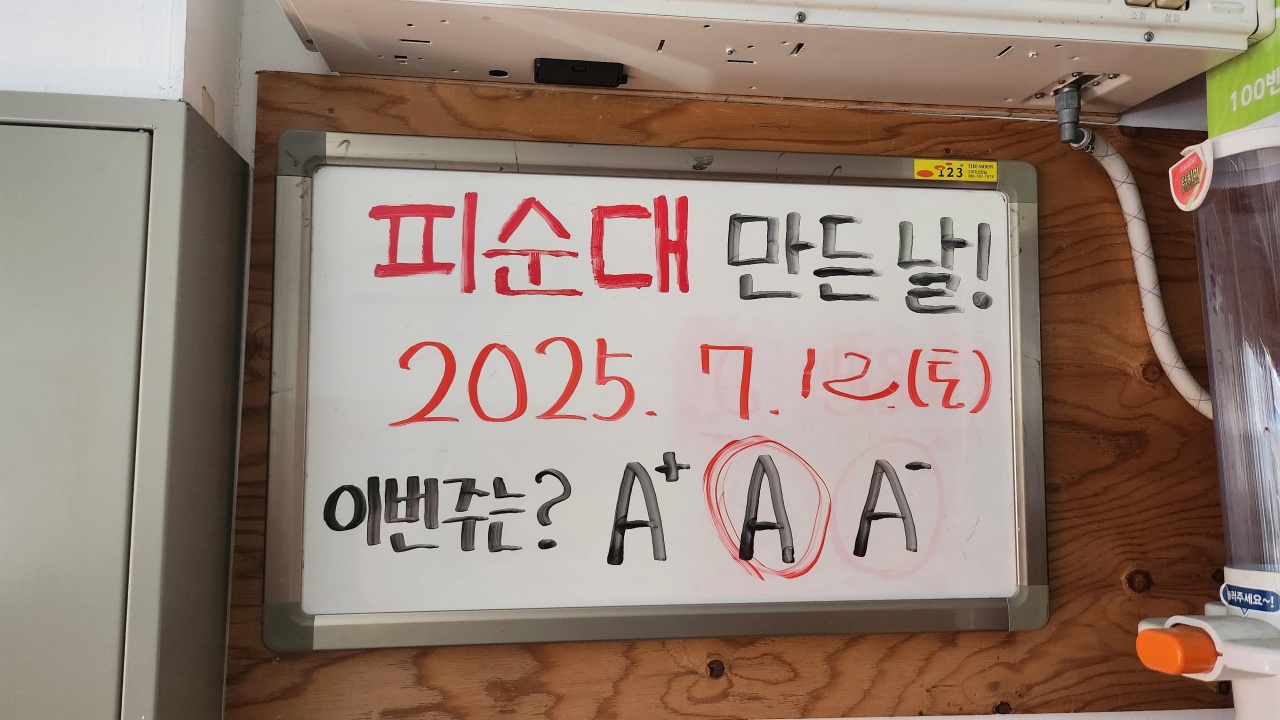 피순대 만든날!
2025. 7. 12.(토)
이번주는? A+ A A-
123
THE-MOON
100번
눌러주세요~!